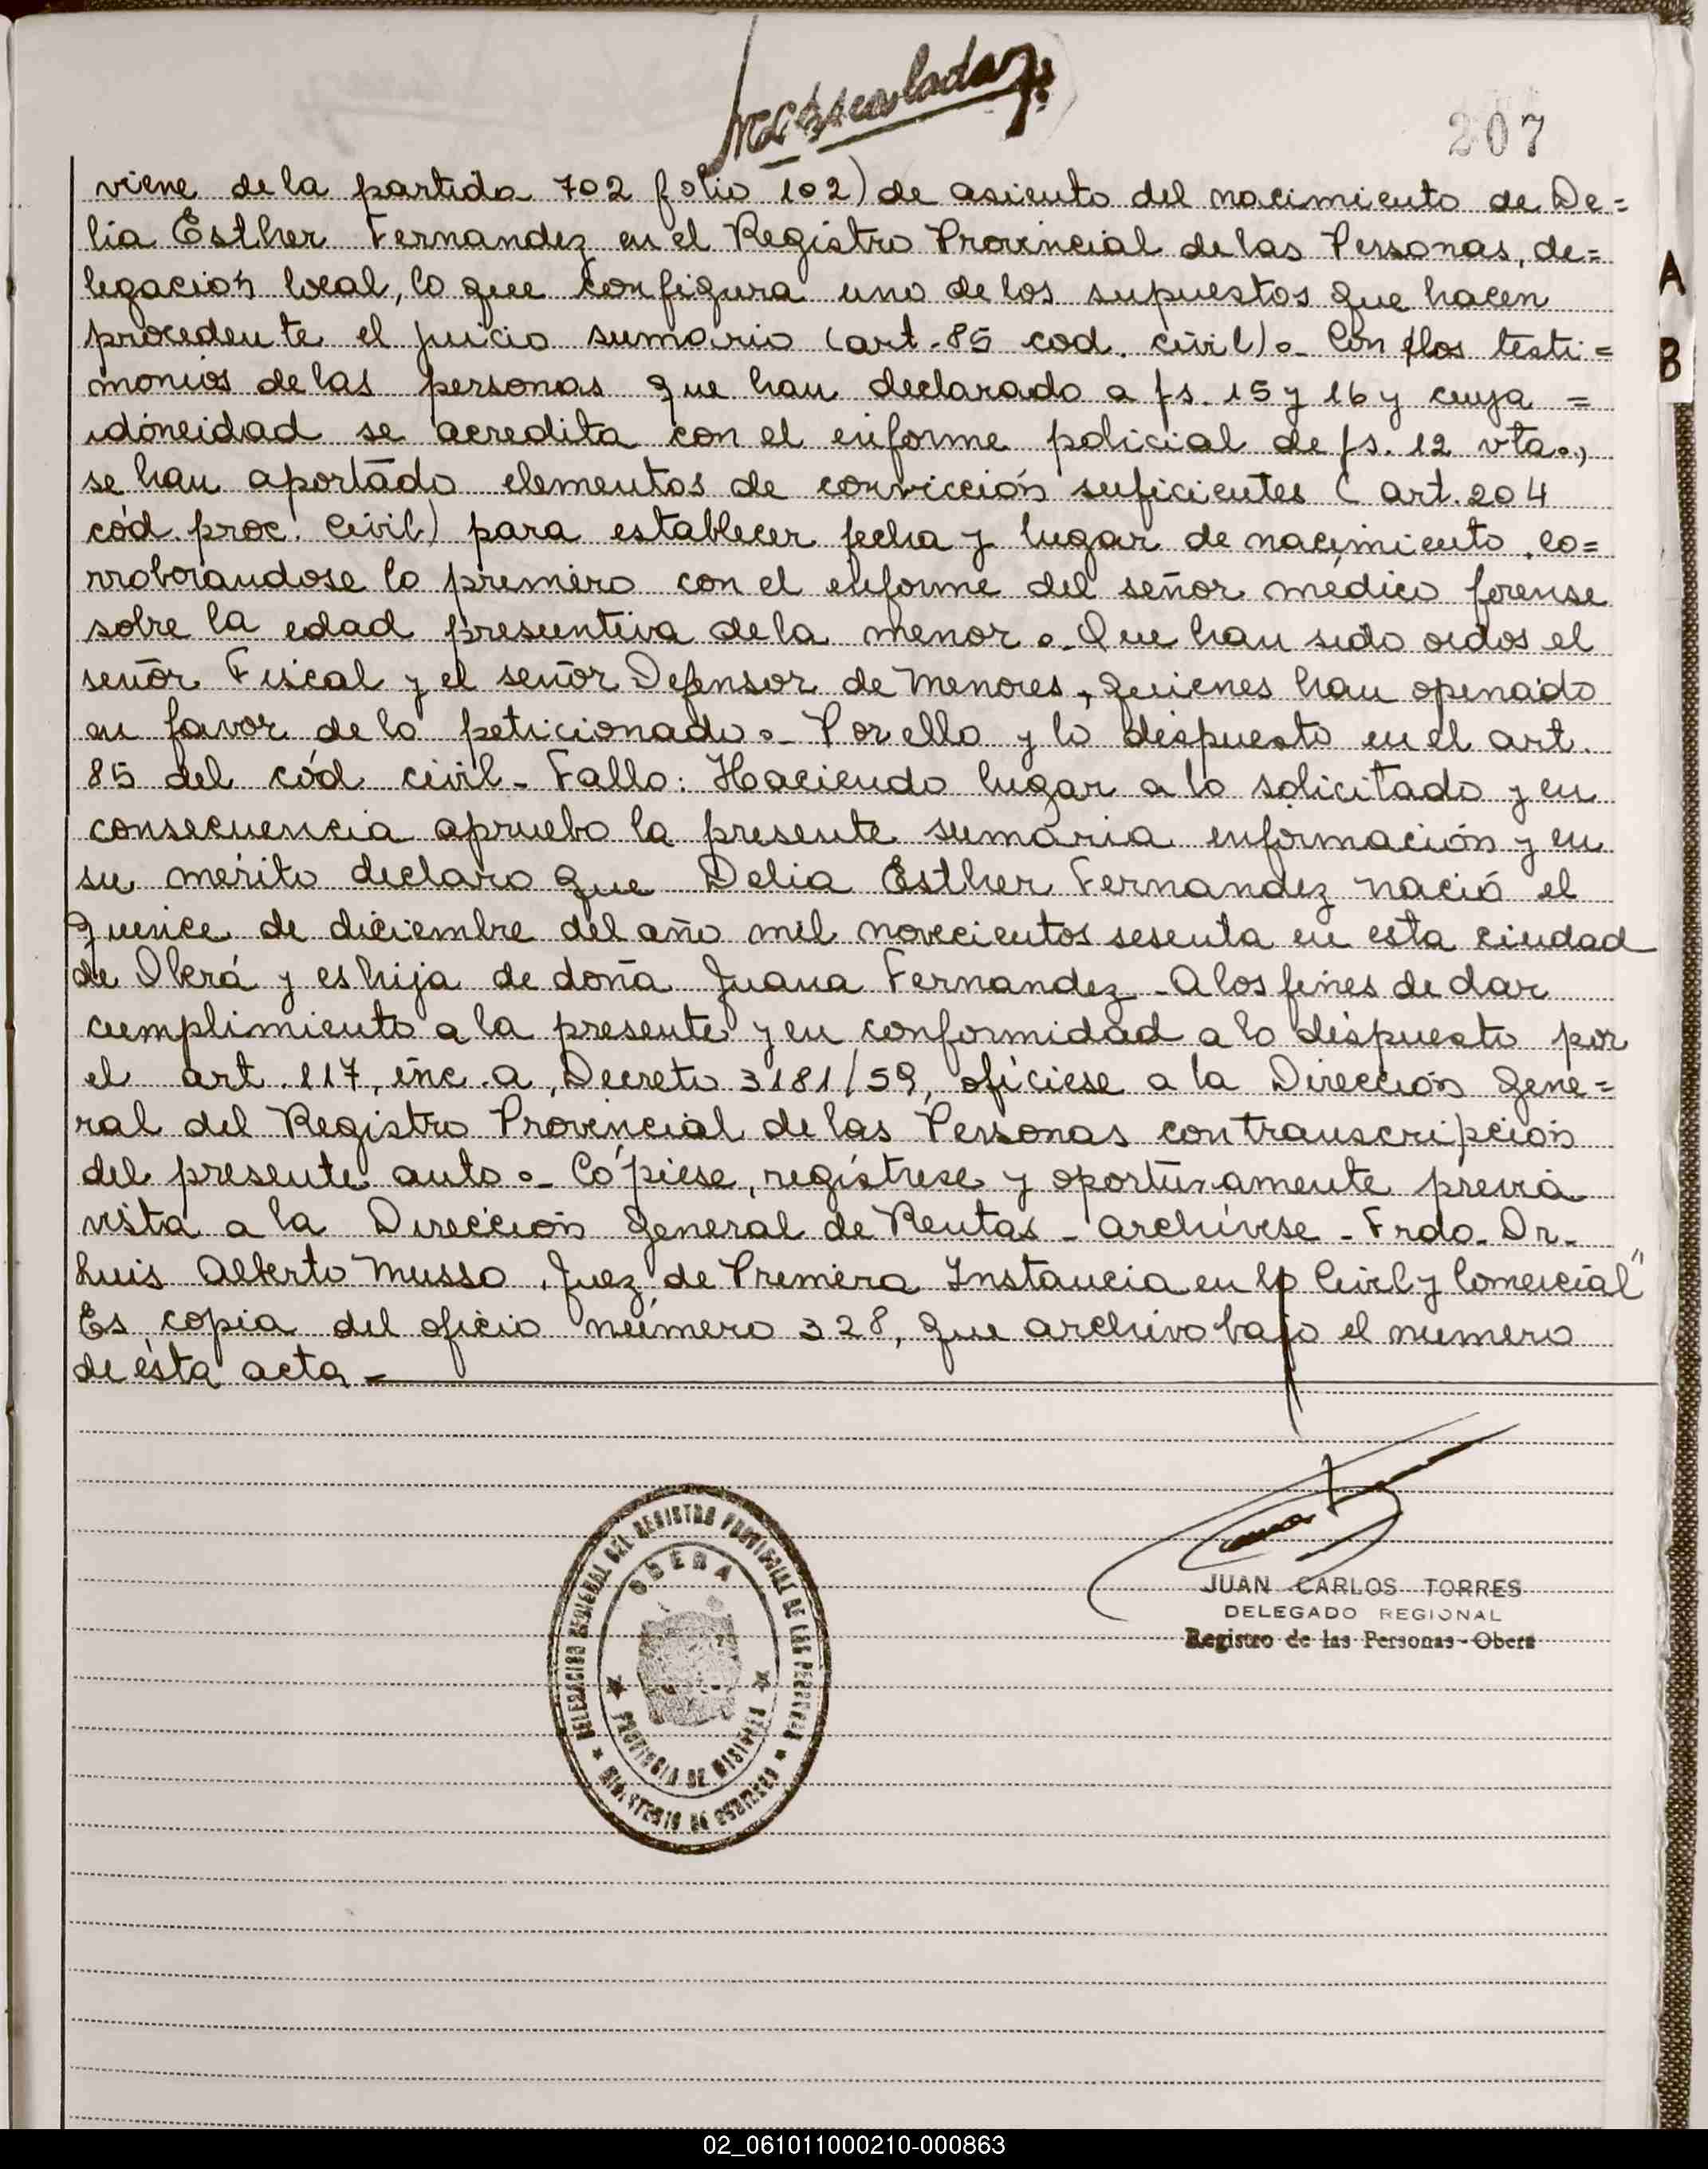 207
viene de la partida 702 folio 102) de asiento del nacimiento de De=
lia Esther Fernandez en el Registro Provincial de las Personas, de=
legación local, lo que configura uno de los supuestos que hacen
procedente el juicio sumario (art. 85 cod. civil).- Con los testi=
monios de las personas que han declarado a fs. 15 y 16 y cuya =
idóneidad se acredita con el informe policial de fs. 12 vta.,
se han aportado elementos de convicción suficientes (art. 204
cód. proc. Civil) para establecer fecha y lugar de nacimiento, co=
rroborandose lo primero con el informe del señor médico forense
sobre la edad presuntiva de la menor.- Que han sido oidos el
señor Fiscal y el señor Defensor de Menores, quienes han opinado
en favor de lo peticionado.- Por ello y lo dispuesto en el art.
85 del cód civil- Fallo: Haciendo lugar a lo solicitado y en
consecuencia apruebo la presente sumaria información y en
su mérito declaro que Delia Esther Fernandez nació el
quince de diciembre del año mil novecientos sesenta en esta ciudad
de Oberá y es hija de doña Juana Fernandez - A los fines de dar
cumplimiento a la presente y en conformidad a lo dispuesto por
el art. 117, inc. a, Decreto 3181/59, ofíciese a la Dirección Gene=
ral del Registro Provincial de las Personas con transcripción
del presente auto.- Cópiese, regístrese y oportunamente previa
vista a la Dirección General de Rentas - archívese - Frdo. Dr.
Luis Alberto Musso, Juez de Primera Instancia en lo Civil y Comercial"
Es copia del oficio número 328, que archivo bajo el numero
de ésta acta -
JUAN CARLOS TORRES
DELEGADO REGIONAL
Registro de las Personas - Obera
DELEGACION REGIONAL DEL REGISTRO PROVINCIAL DE LAS PERSONAS
OBERA
PROVINCIA DE MISIONES
MINISTERIO DE GOBIERNO
A
B
02_061011000210-000863